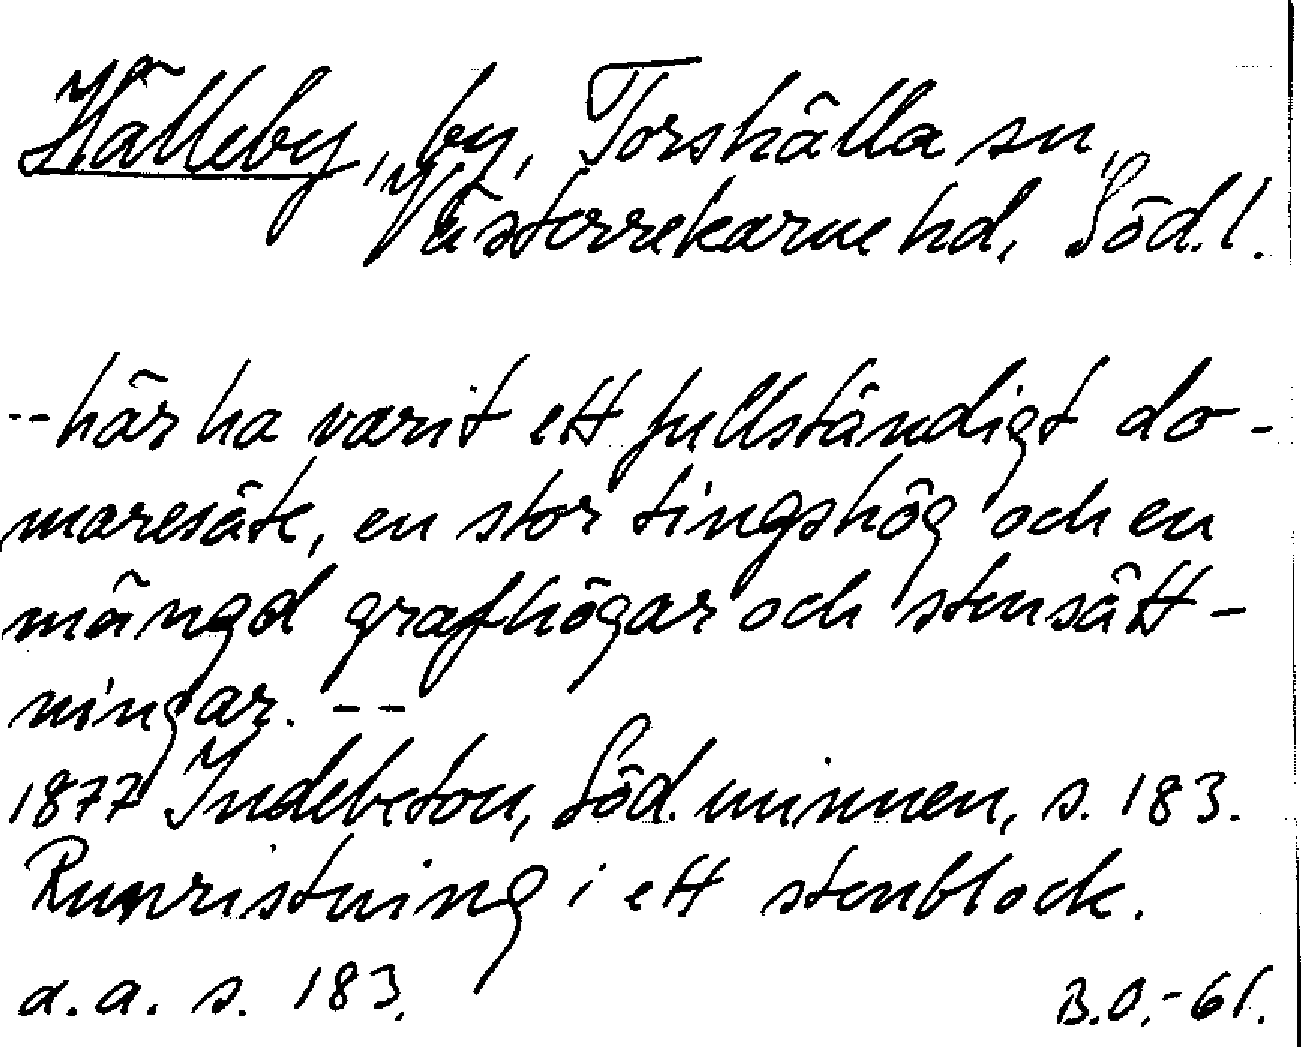 Hälleby, by, Torshälla sn,
Västerrekarne hd, Söd.l.
-- här ha varit ett fullständigt do-
maresäte, en stor tingshög och en
mängd grafhögar och stensätt-
ningar. --
1877 Indebetou, Söd. minnen, s. 183.
Runristning i ett stenblock.
a.a. s. 183.
B.O.-61.